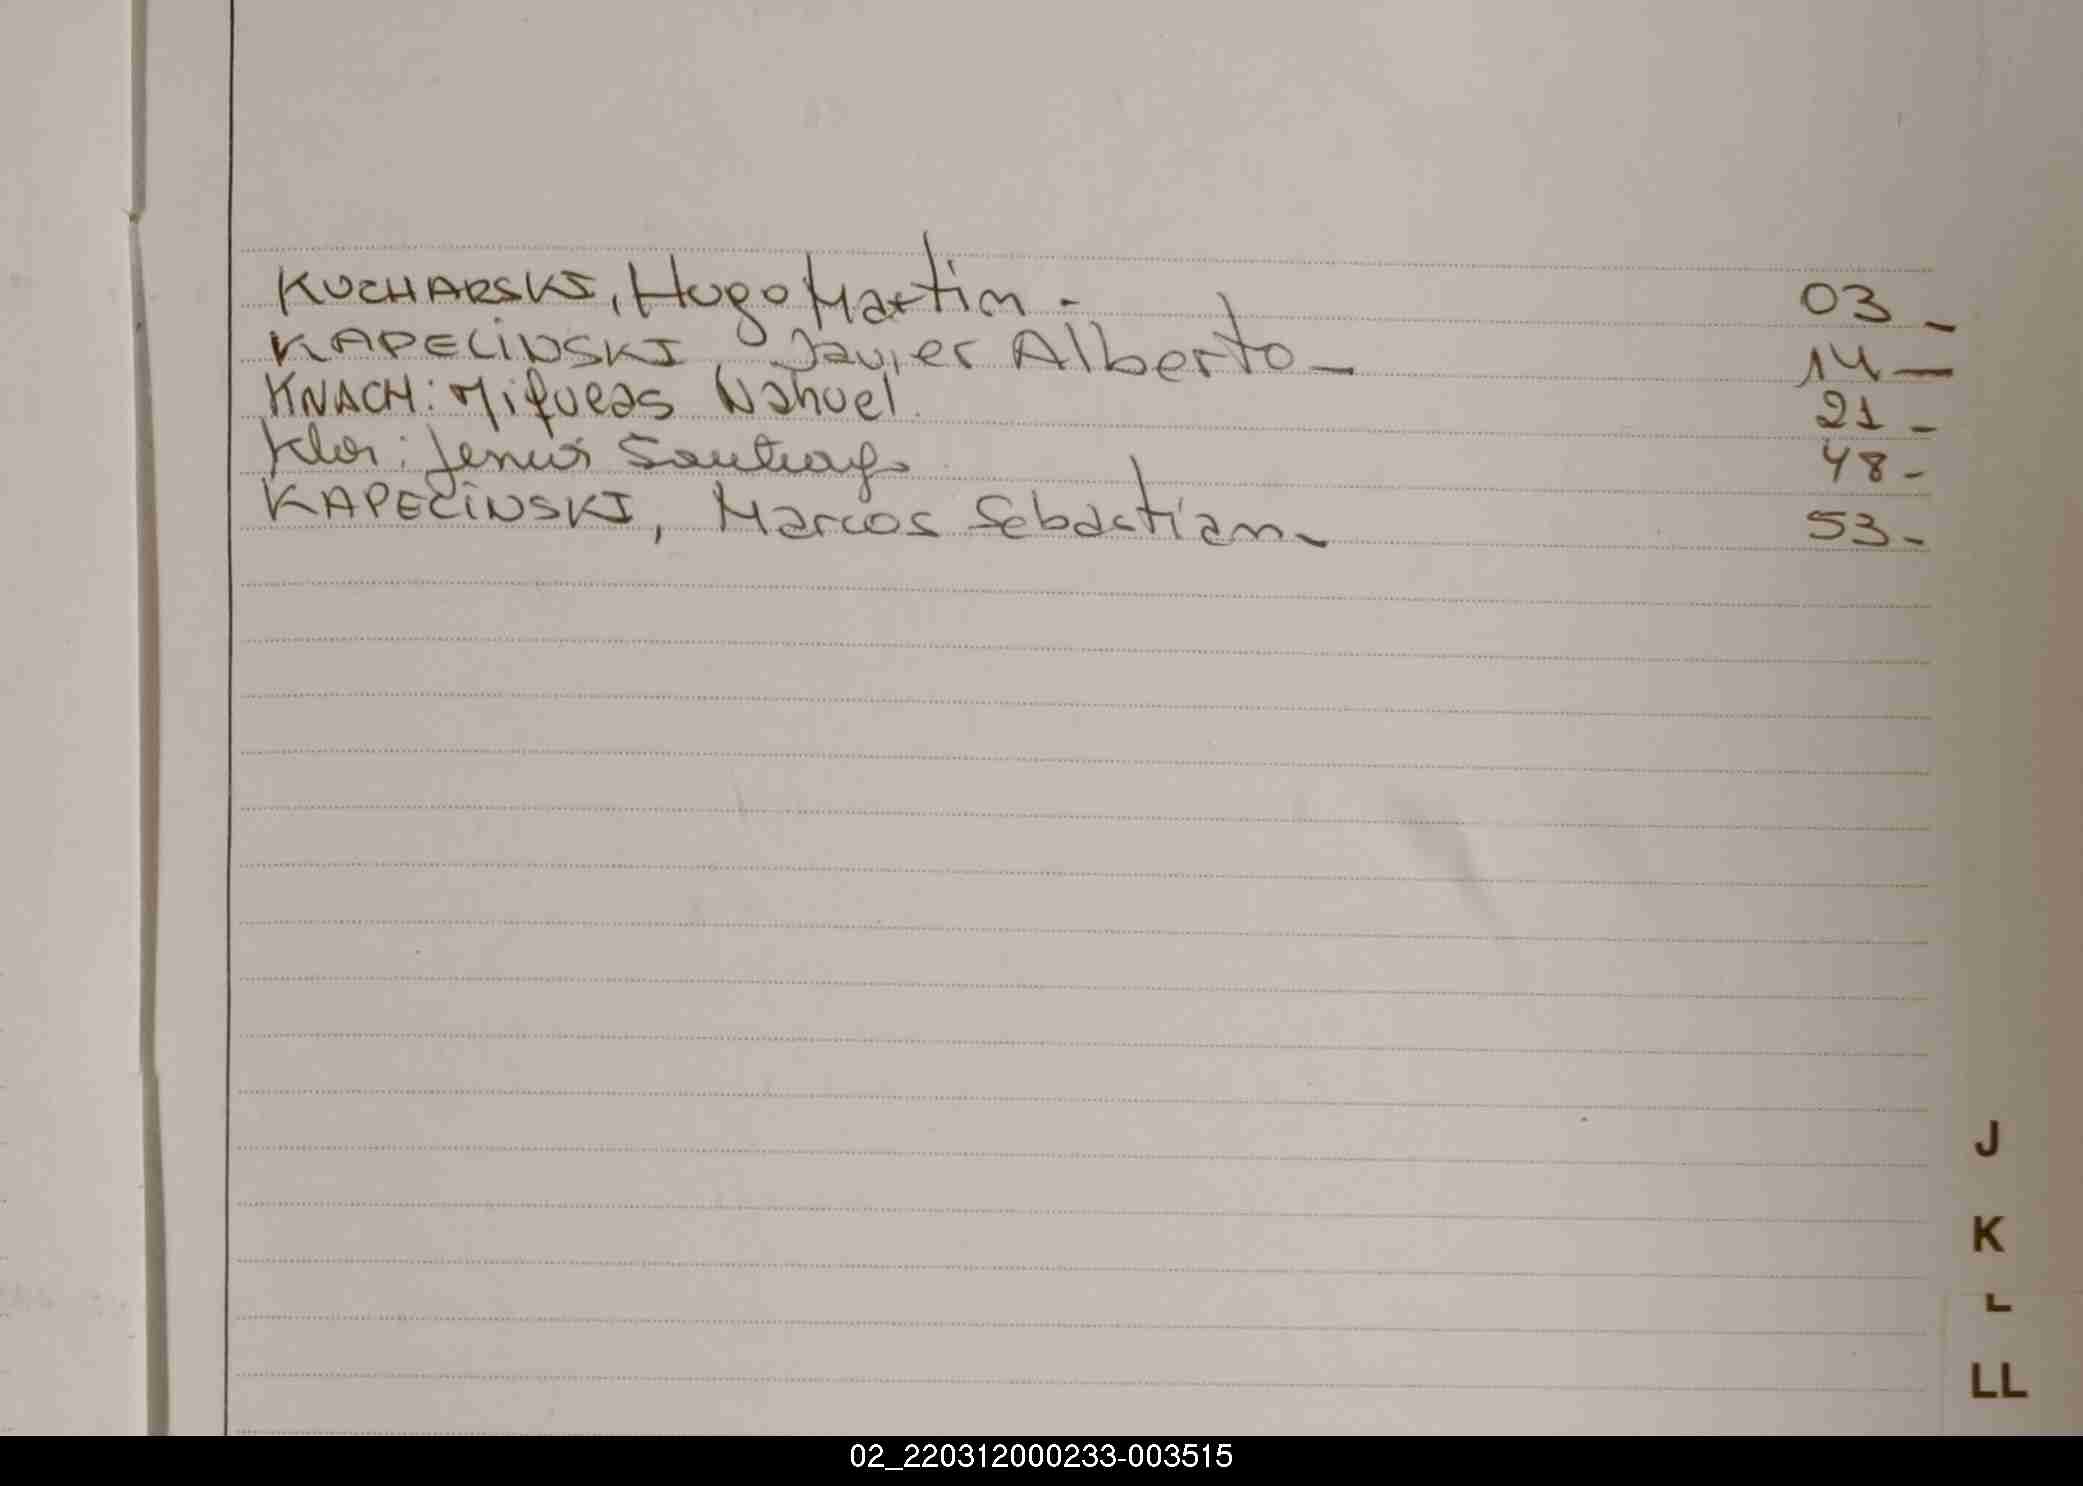 KUCHARSKI, Hugo Martin.- 03_
KAPELINSKI Javier Alberto_ 14_
KNACH: Miqueas Nahuel. 21_
Santiago 48-
KAPELINSKI, Marcos Sebastian_ 53-
J
K
L
LL
02_220312000233-003515